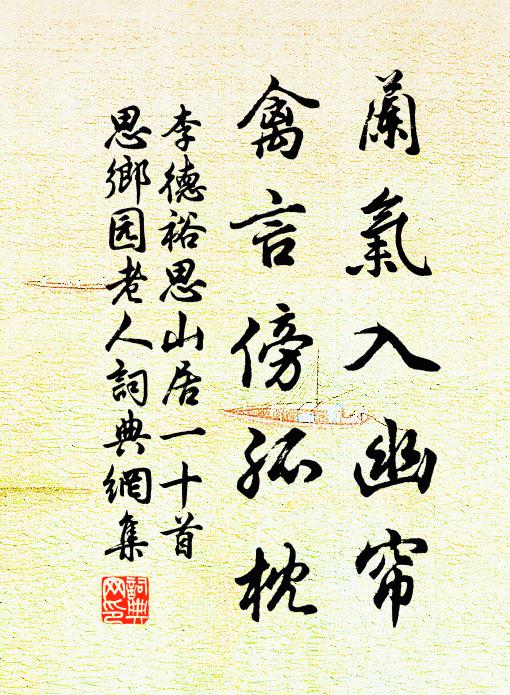 蘭氣入幽帘
禽言傍孤枕
李德裕思山居一十首
思鄉园老人詞典網集
詞典网印